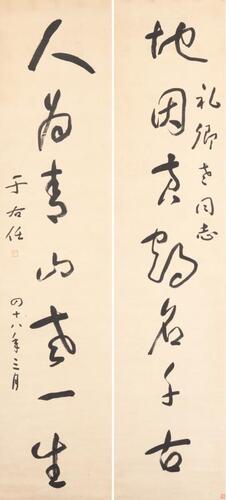 礼卿老同志
地因黄鶴名千古
人为青山老一生
四十八年三月
于右任